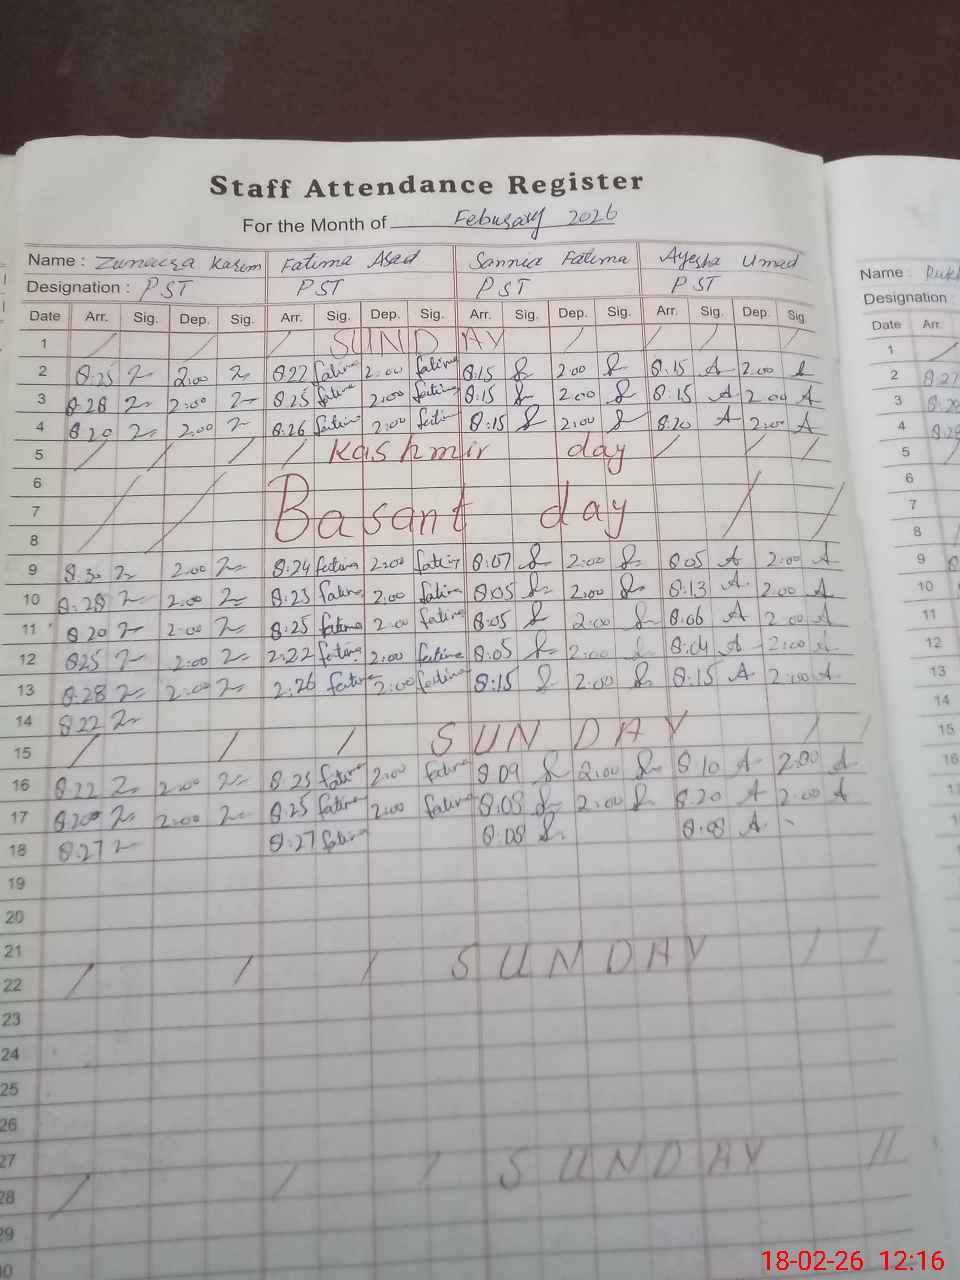 Staff Attendance Register
For the Month of Febusary 2026
Name : Zunaira Karim Fatima Asad Sannia Fatima Ayesha Umad
Name :
Designation : PST PST PST PST
Designation :
Date Arr. Sig. Dep. Sig. Arr. Sig. Dep. Sig. Arr. Sig. Dep. Sig. Arr. Sig. Dep. Sig.
Date Arr.
1 SUNDAY
2 8:25 2:00 8:22 fatima 2:00 fatima 8:15 2:00 8:15 A 2:00
3 8:28 2:00 8:25 fatima 2:00 fatima 8:15 2:00 8:15 A 2:00 A
4 8:20 2:00 8:26 fatima 2:00 fatima 8:15 2:00 8:20 A 2:00 A
5 Kashmir day
6
7 Basant day
8
9 8:30 2:00 8:24 fatima 2:00 fatima 8:07 2:00 8:05 A 2:00 A
10 8:28 2:00 8:23 fatima 2:00 fatima 8:05 2:00 8:13 A 2:00 A
11 8:20 2:00 8:25 fatima 2:00 fatima 8:05 2:00 8:06 A 2:00 A
12 8:25 2:00 2:22 fatima 2:00 fatima 8:05 2:00 8:04 A 2:00 A
13 8:28 2:00 2:26 fatima 2:00 fatima 8:15 2:00 8:15 A 2:00 A
14 8:22
15 SUNDAY
16 8:22 2:00 8:25 fatima 2:00 fatima 8:09 2:00 8:10 A 2:00 A
17 8:20 2:00 8:25 fatima 2:00 fatima 8:08 2:00 8:20 A 2:00 A
18 8:27 8:27 fatima 8:08 8:08 A
19
20
21
22 SUNDAY
23
24
25
26
27
28 SUNDAY
29
1
2 8:27
3 8:28
4 8:28
5
6
7
8
9
10
11
12
13
14
15
16
18-02-26 12:16